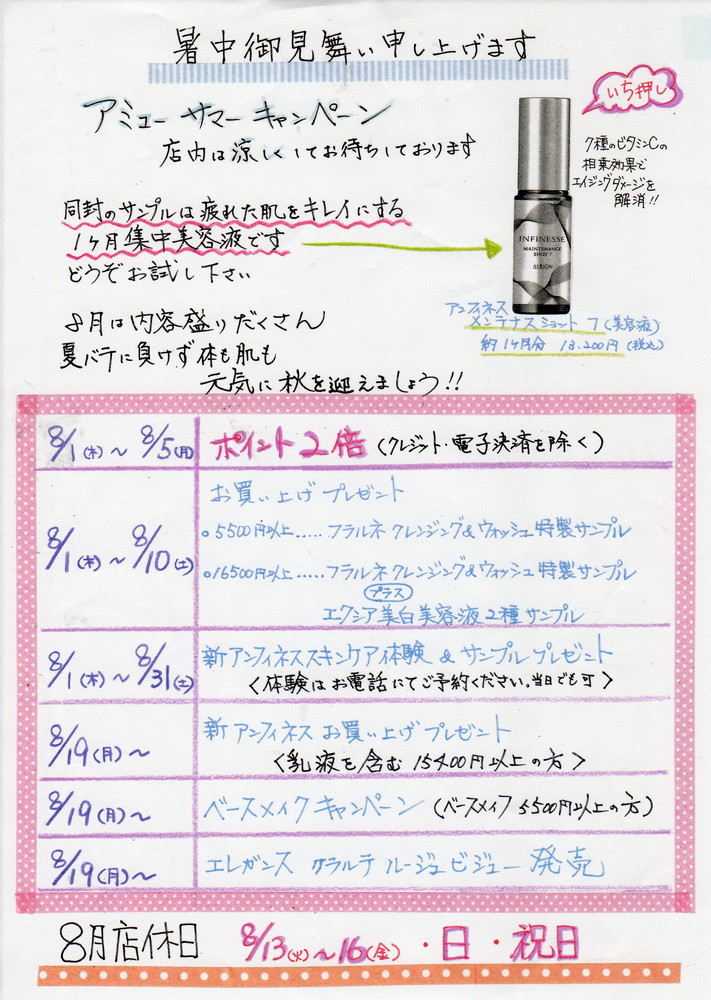 暑中御見舞い申し上げます
アミュー サマー キャンペーン
店内は涼しくしてお待ちしております
いち押し
7種のビタミンCの
相乗効果で
エイジングダメージを
解消!!
同封のサンプルは疲れた肌をキレイにする
1ヶ月集中美容液です
どうぞお試し下さい
INFINESSE
MAINTENANCE
SHOT 7
ALBION
アンフィネス
メンテナスショット 7 (美容液)
約1ヶ月分 13.200円(税込)
8月は内容盛りだくさん
夏バテに負けず体も肌も
元気に秋を迎えましょう!!
8/1(木)～8/5(月) ポイント2倍 (クレジット・電子決済を除く)
お買い上げプレゼント
8/1(木)～8/10(土)
。5500円以上.....フラルネ クレンジング&ウォッシュ特製サンプル
。16500円以上.....フラルネ クレンジング&ウォッシュ特製サンプル
プラス
エクシア美白美容液2種サンプル
8/1(木)～8/31(土) 新アンフィネススキンケアイ体験 & サンプルプレゼント
<体験はお電話にてご予約ください。当日でも可>
8/19(月)～ 新アンフィネスお買い上げプレゼント
<乳液を含む15400円以上の方>
8/19(月)～ ベースメイクキャンペーン (ベースメイク5500円以上の方)
8/19(月)～ エレガンス クラルテ ルージュビジュー 発売
8月店休日 8/13(火)～16(金)・日・祝日